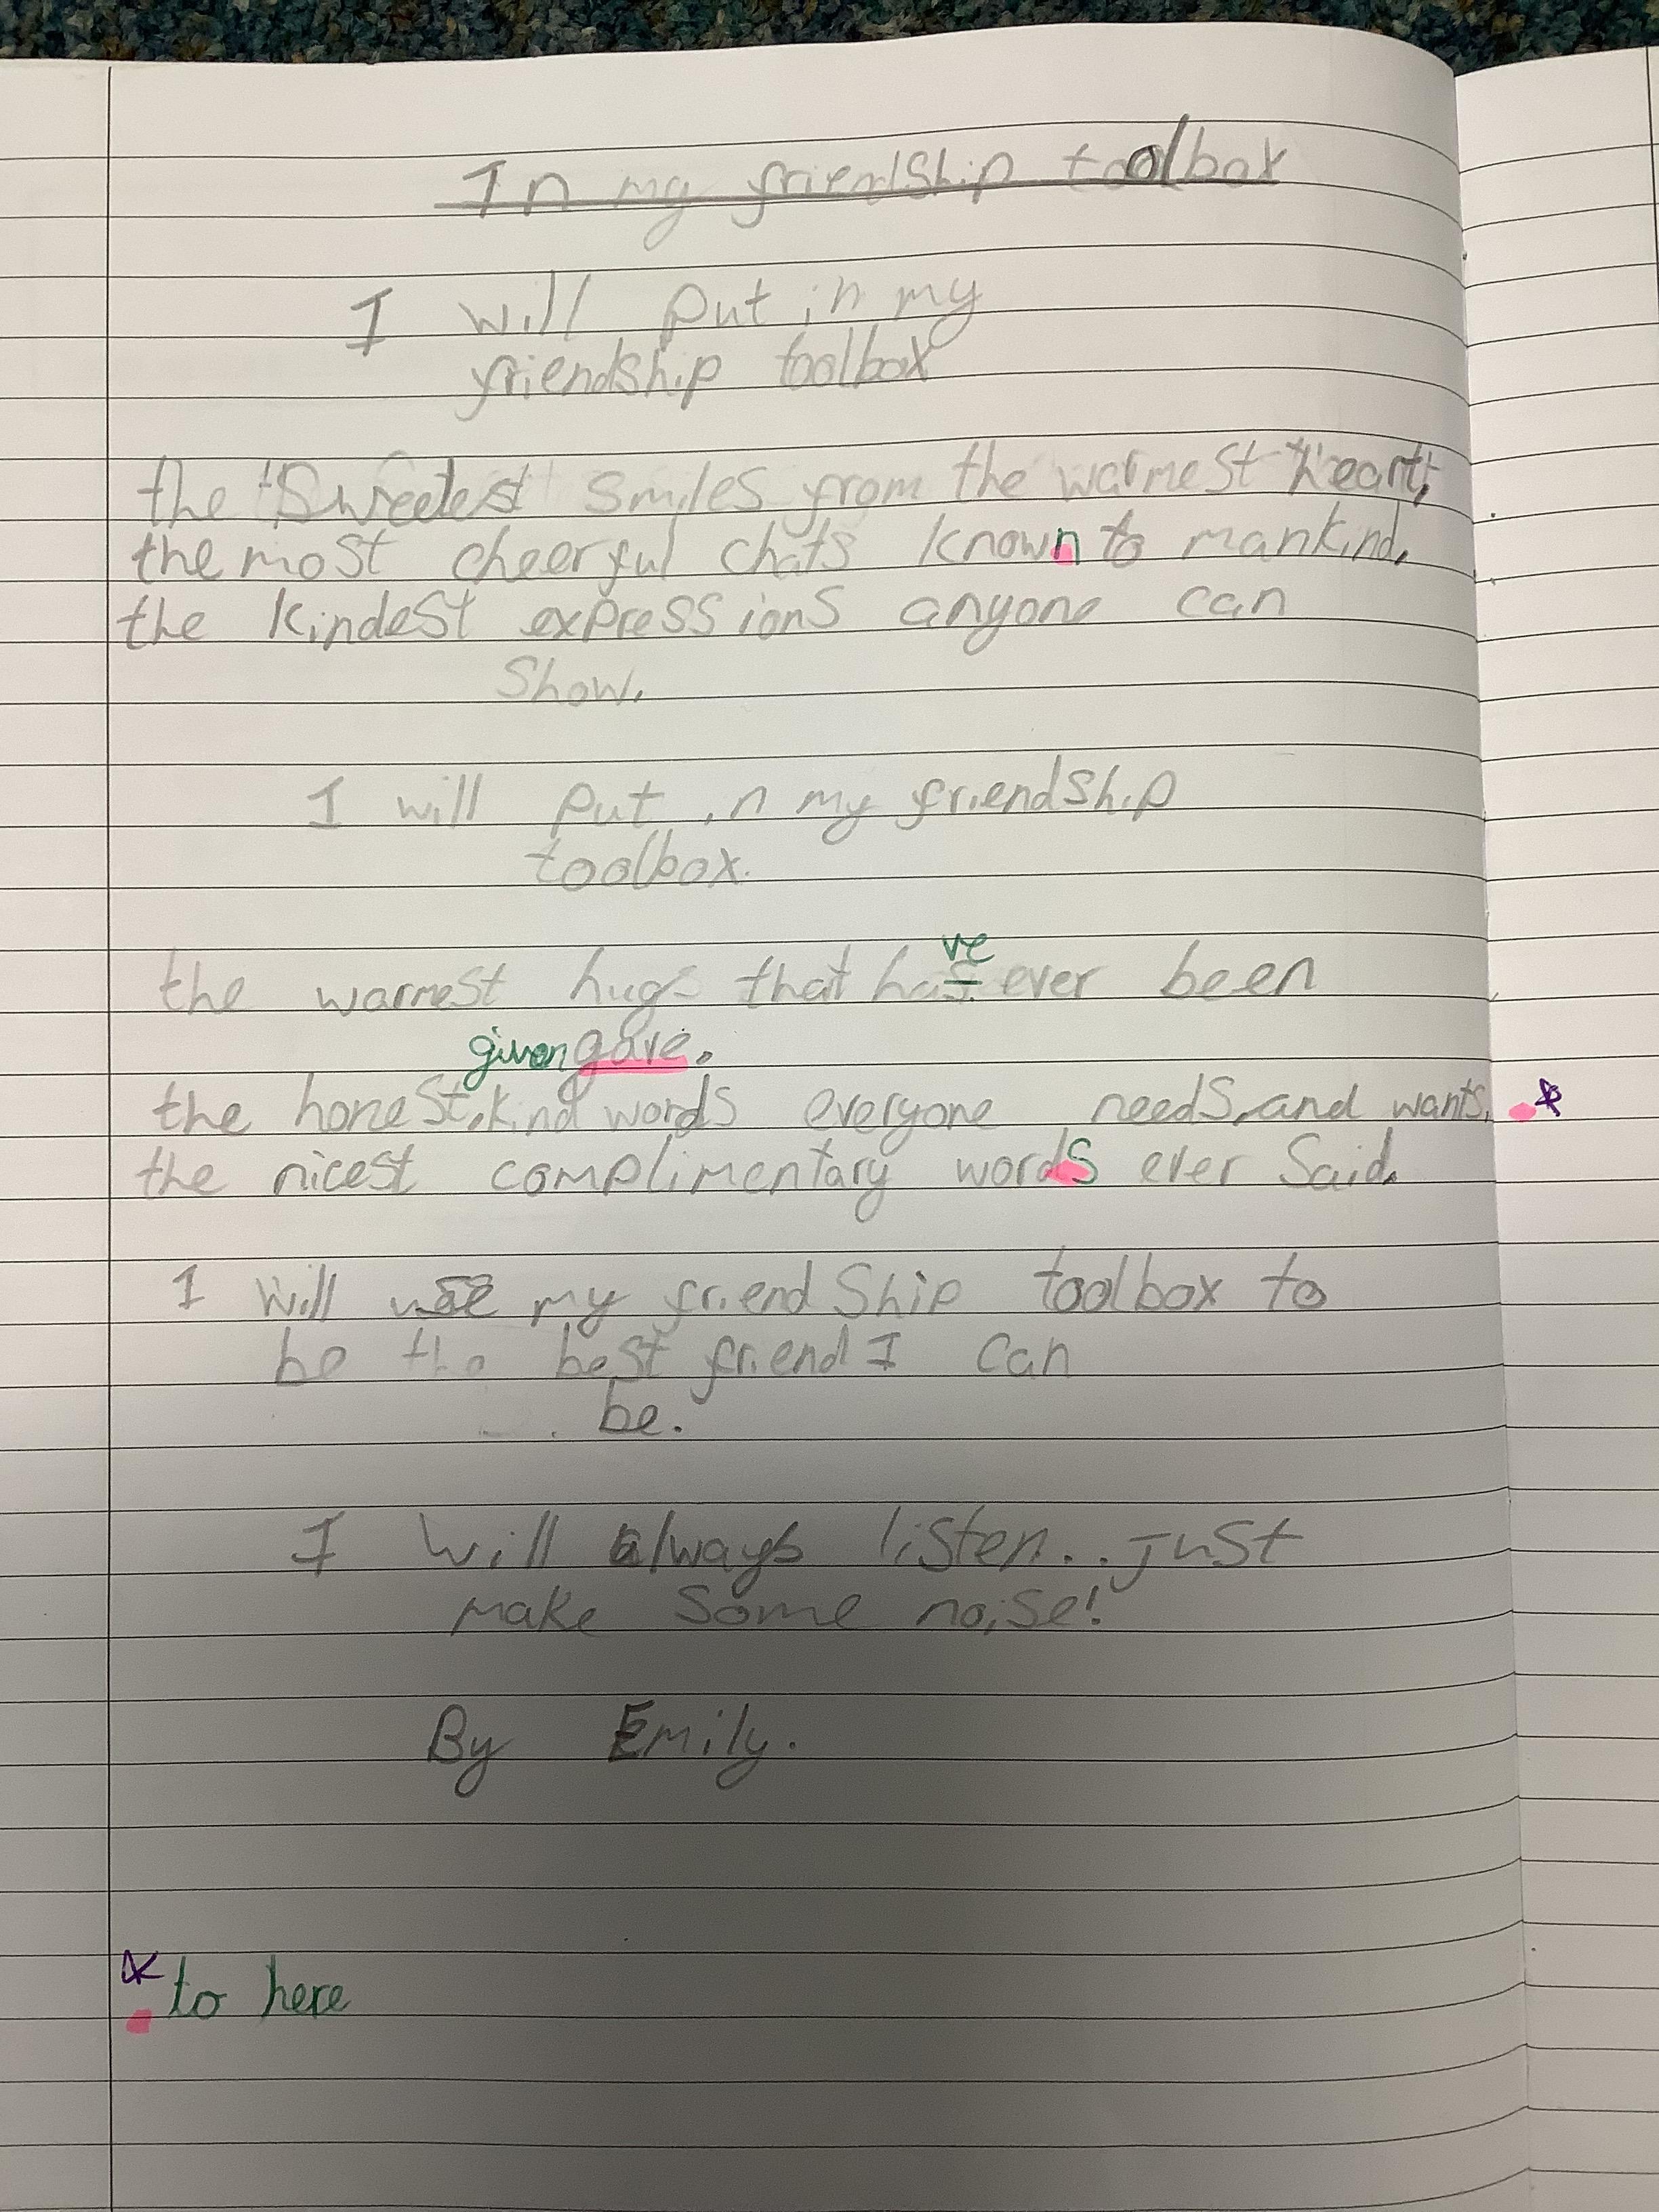 In my friendship toolbox
I will put in my
friendship toolbox
the Sweetest smiles from the warmest heart,
the most cheerful chats known to mankind,
the kindest expressions anyone can
Show.
I will put in my friendship
toolbox.
the warmest hugs that has ve ever been
given gave.
the honest, kind words everyone needs and wants. *
the nicest complimentary words ever Said.
I will use my friendShip toolbox to
be the best friend I can
be.
I will always listen... just
make some noise!
By Emily.
* to here